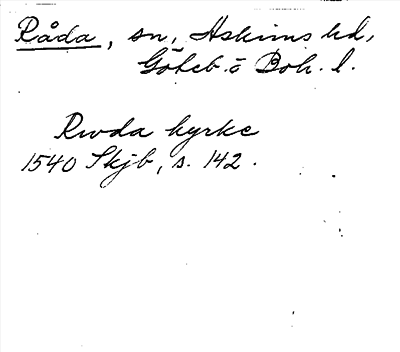 Råda, sn, Askims hd,
Göteb. o Boh. l.
Rwda kyrke
1540 Skjb, s. 142.